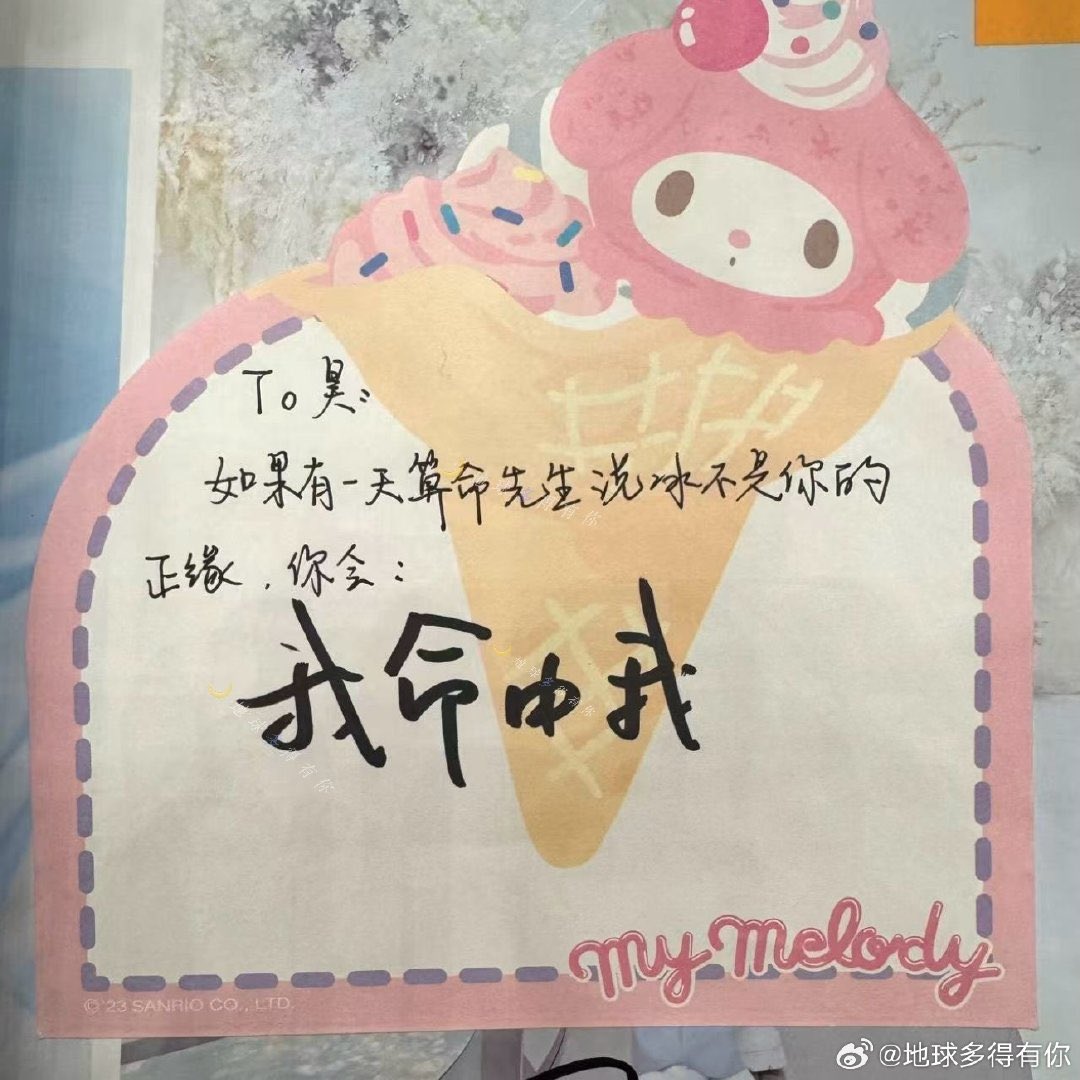 To 昊:
如果有一天算命先生说冰不是你的
正缘,你会:
我命由我
my melody
© '23 SANRIO CO., LTD.
@地球多得有你